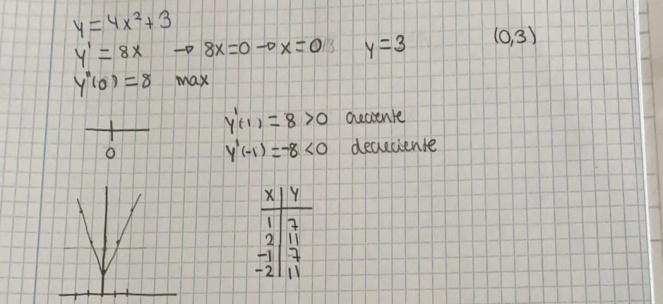 y = 4x² + 3
y' = 8x → 8x = 0 → x = 0 y = 3 (0,3)
y''(0) = 8 max
y'(1) = 8 > 0 creciente
y'(-1) = -8 < 0 decreciente
0
x | y
1 | 7
2 | 11
-1 | 7
-2 | 11